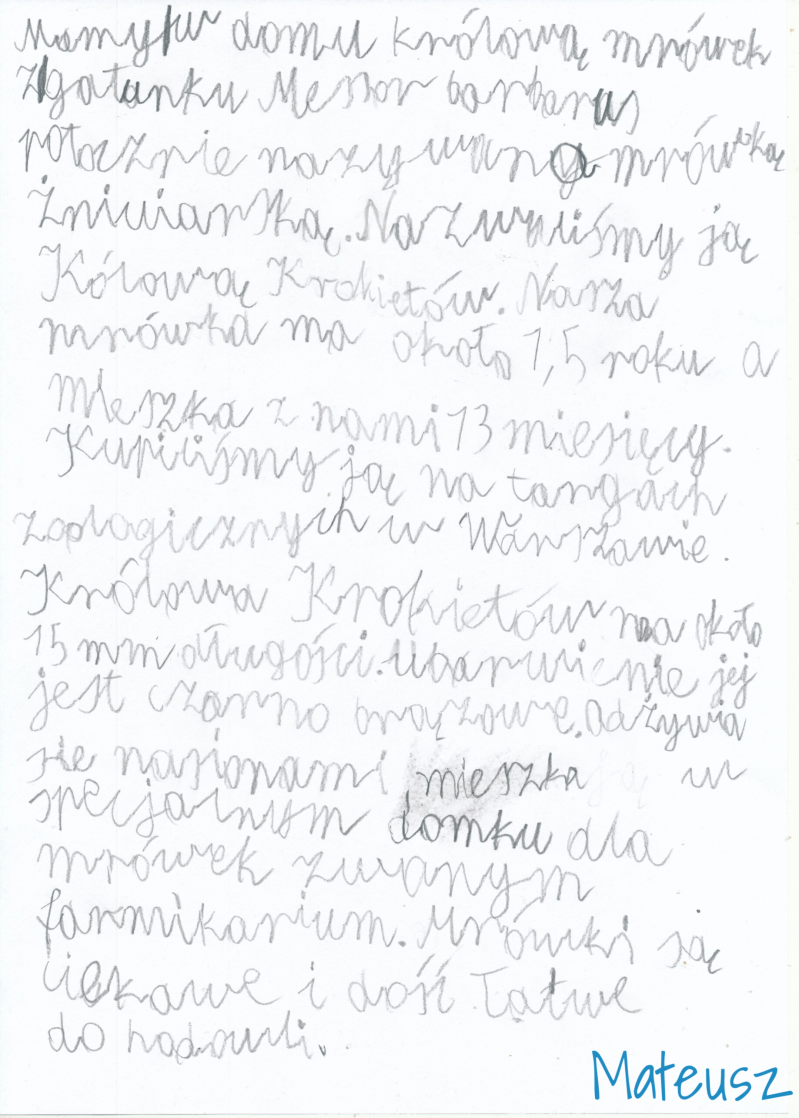 Mamy w domu królową mrówek
z gatunku Messor barbarus
potocznie nazywaną mrówką
Żniwiarką. Nazwaliśmy ją
Kólową Krokietów. Nasza
mrówka ma około 1,5 roku a
mieszka z nami 13 miesięcy.
Kupiliśmy ją na targach
zoologicznych w Warszawie.
Królowa Krokietów ma około
15 mm długości. Ubarwienie jej
jest czarno brązowe. Odżywia
sie nasionami, mieszka w
specjalnym domku dla
mrówek zwanym
farmikarium. Mrówki są
ciekawe i dość łatwe
do hodowli.
Mateusz